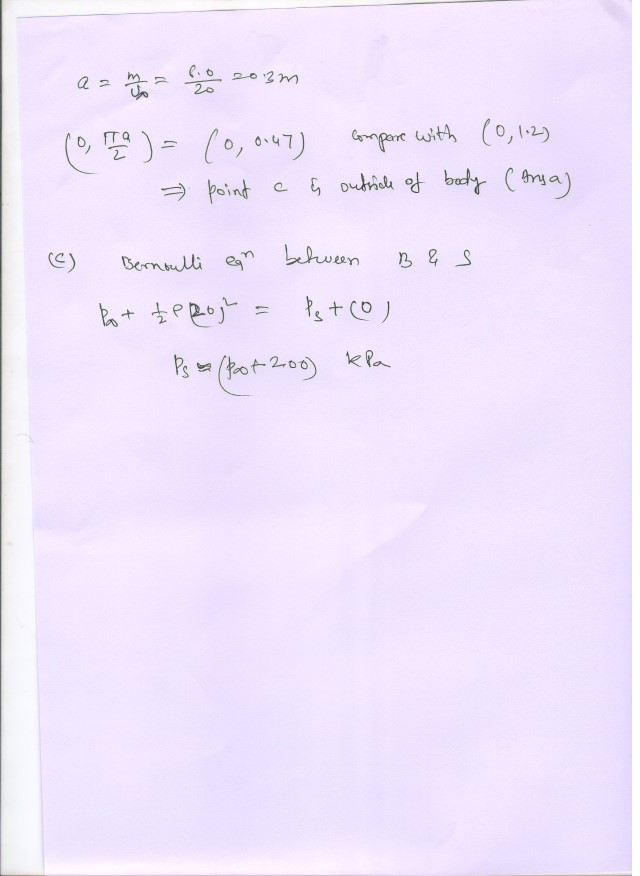 a = m/U∞ = 6.0/20 = 0.3m
(0, πa/2) = (0, 0.47) compare with (0, 1.2)
⇒ point c is outside of body (Ans a)
(c) Bernoulli eqn between B & S
p∞ + ½ρ(20)² = ps + (0)
Ps = (p∞ + 200) kPa